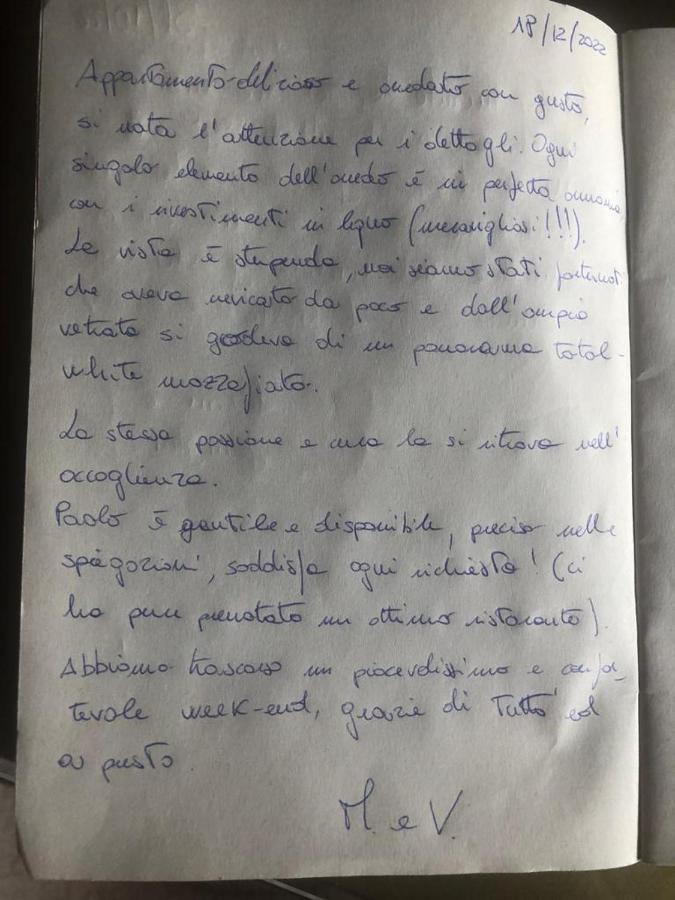 18/12/2022
Appartamento delizioso e arredato con gusto,
si nota l'attenzione per i dettagli. Ogni
singolo elemento dell'arredo è in perfetta armonia
con i rivestimenti in legno (meravigliosi!!!).
La vista è stupenda, noi siamo stati fortunati
che aveva nevicato da poco e dall'ampia
vetrata si godeva di un panorama total-
white mozzafiato.
La stessa passione e cura la si ritrova nell'
accoglienza.
Paolo è gentile e disponibile, preciso nelle
spiegazioni, soddisfa ogni richiesta! (ci
ha pure prenotato un ottimo ristorante).
Abbiamo trascorso un piacevolissimo e confor-
tevole week-end, grazie di tutto ed
a presto
M. e V.